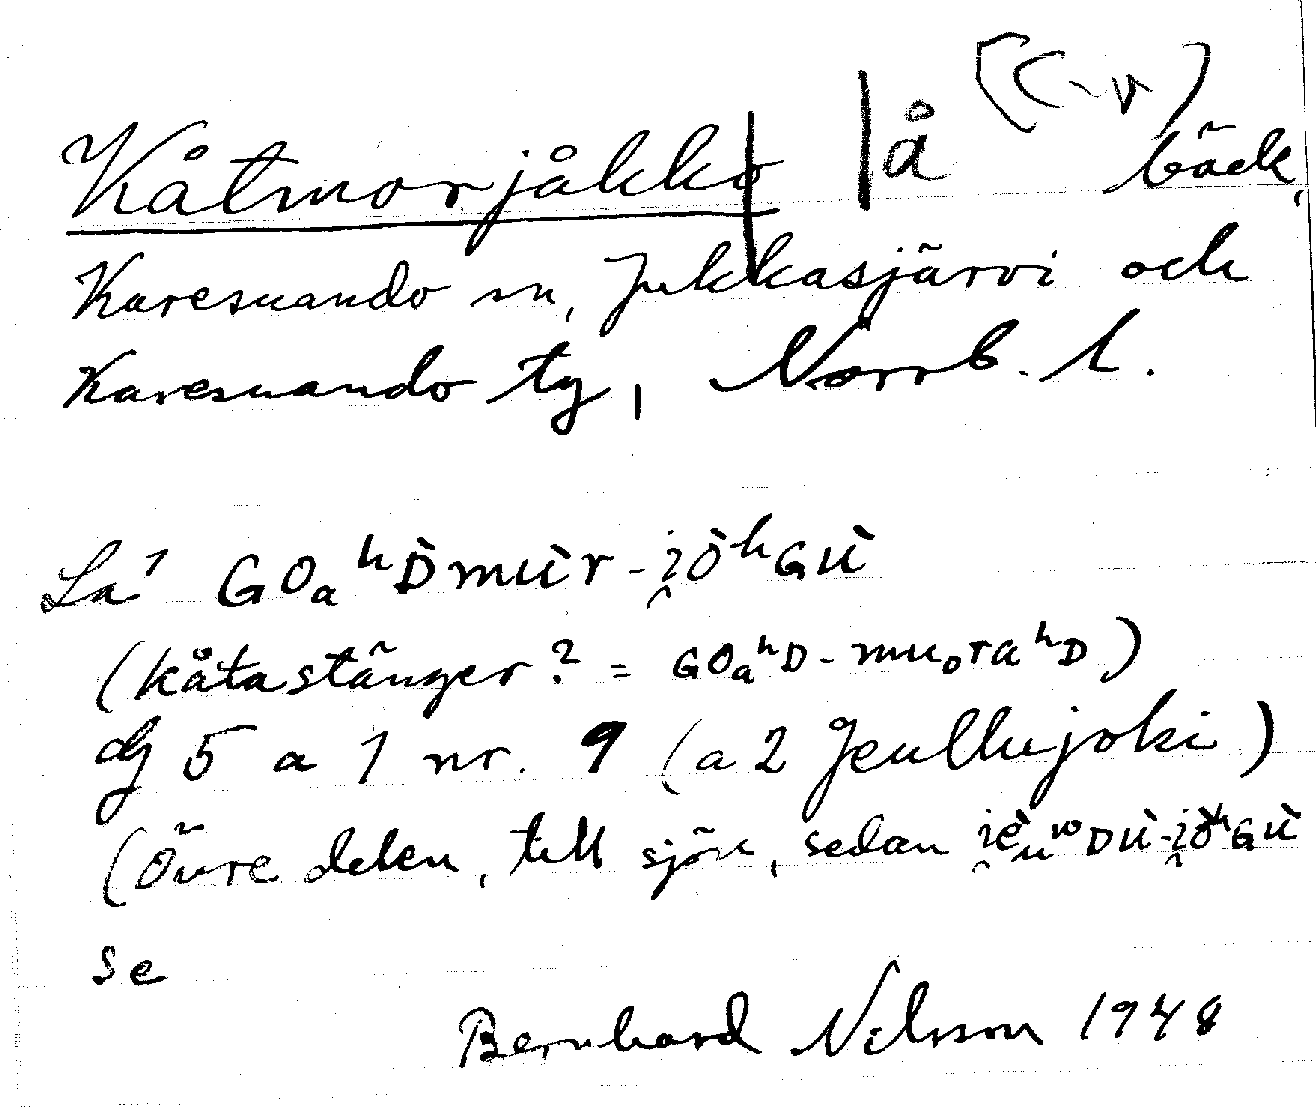 Kåtmorjåkko |å [(C-v) bäck,
Karesuando sn, Jukkasjärvi och
Karesuando tg, Norrb. l.
La' GOₐʰD̀mùr-i̯òʰGù
(kåtastänger? = GOₐʰD-muₒraʰD)
dg 5 a 1 nr. 9 (a 2 Jeullujoki)
(Övre delen, till sjön, sedan i̯èᵤʷDù-i̯òʰGù
se
Bernhard Nilsson 1948